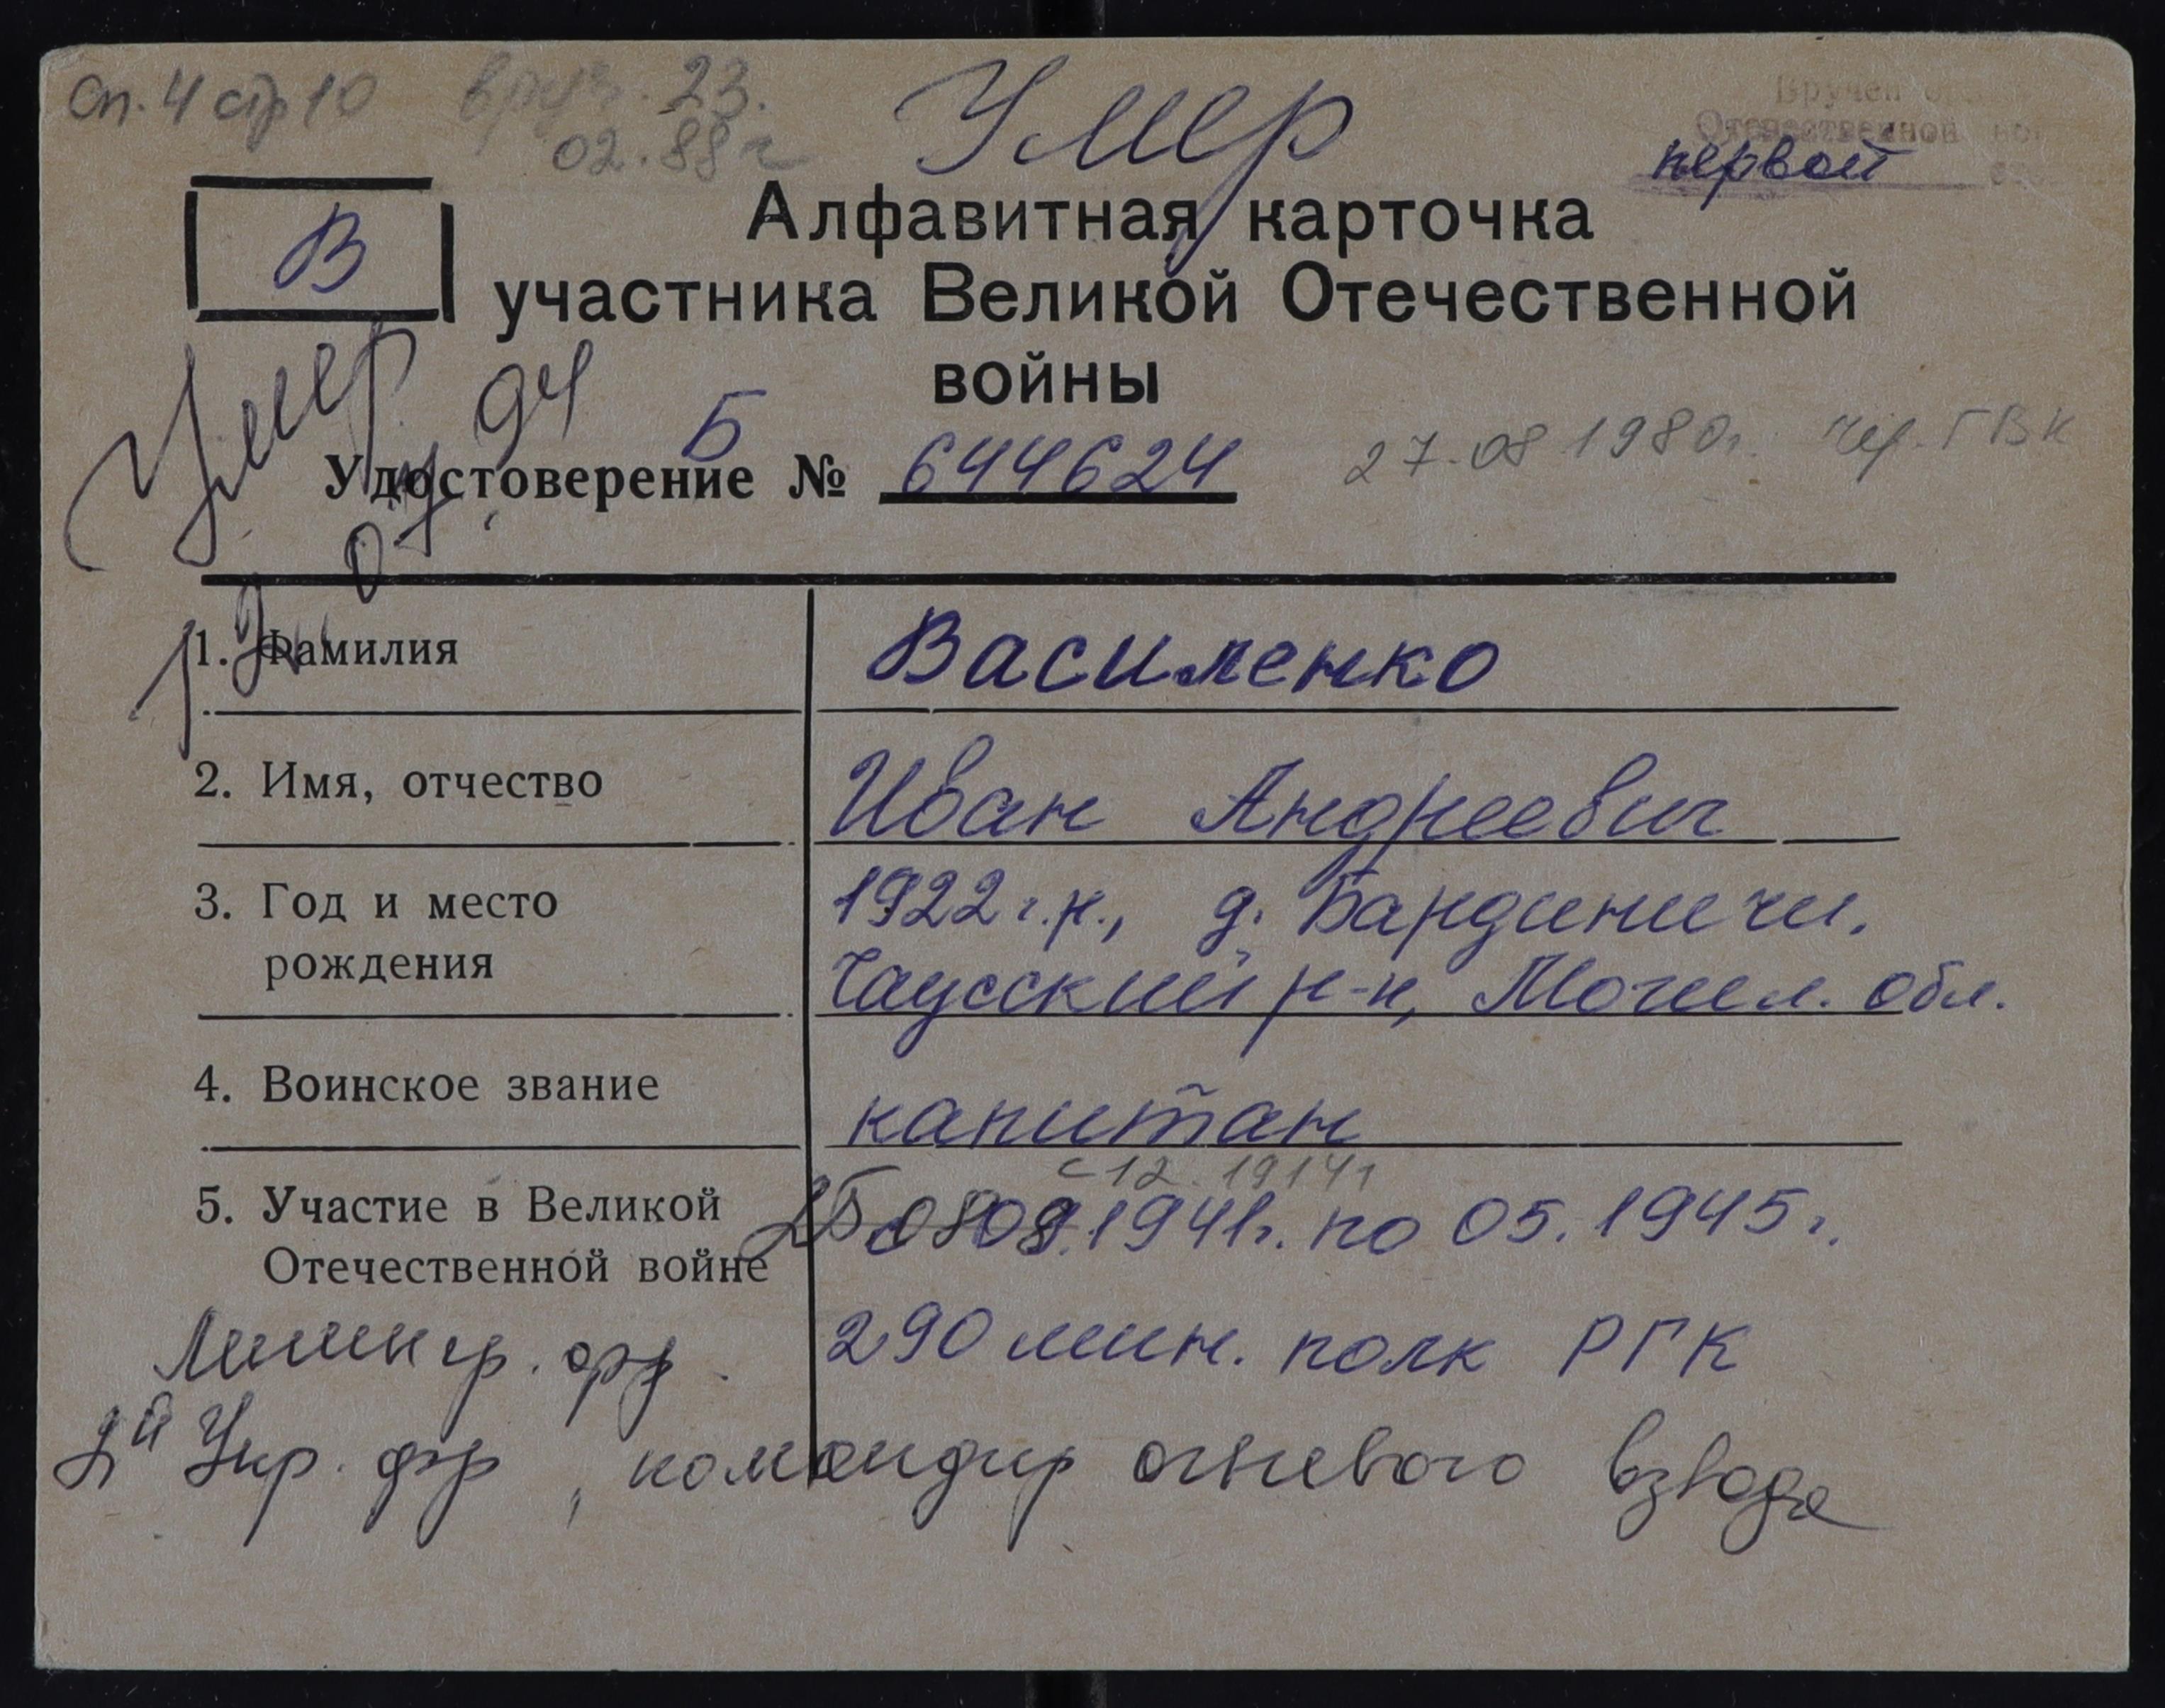 Оп. 4 стр 10 вруч. 23.
02.88 г
Умер
Вручен
Отечественной
первой
В
Алфавитная карточка
участника Великой Отечественной
войны
Умер
94
Б
Удостоверение № 644624
27.08 1980г. ГВК
1. Фамилия Василенко
2. Имя, отчество Иван Андреевич
3. Год и место 1922 г.р., д. Бардиничи,
рождения Чаусский р-н, Могил. обл.
4. Воинское звание капитан
с 12. 1941
5. Участие в Великой 1941г. по 05.1945г.
Отечественной войне
290 мин. полк РГК
Ленингр. фр.
2й Укр. фр, командир огневого взвода